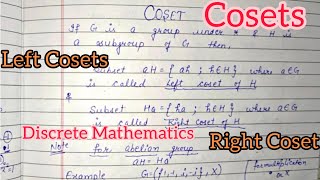 COSET
Cosets
If G is a group under * & H is
a subgroup of G then,
Left Cosets
Subset aH = { ah ; h∈H } where a∈G
is called left coset of H
&
Subset Ha = { ha ; h∈H } where a∈G
is called Right coset of H
Discrete Mathematics
Right Coset
Note for abelian group
aH = Ha
Example G = {1, -1, i, -i}, X)